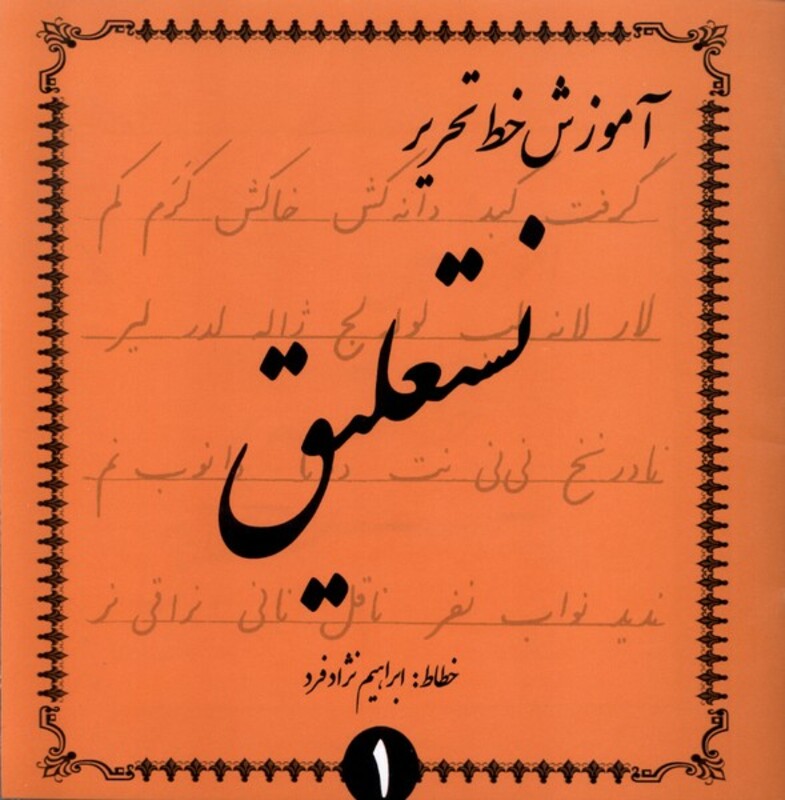 آموزش خط تحریر
گرفت کبد دانه کش خاکش کرَم کم
نستعلیق
لار لانه لب لج ژاله لدر لیر
نادر نخ نی‌نی نت نم
ندید نواب نفر ناقل نانی نراقی نر
خطاط: ابراهیم نژادفرد
۱